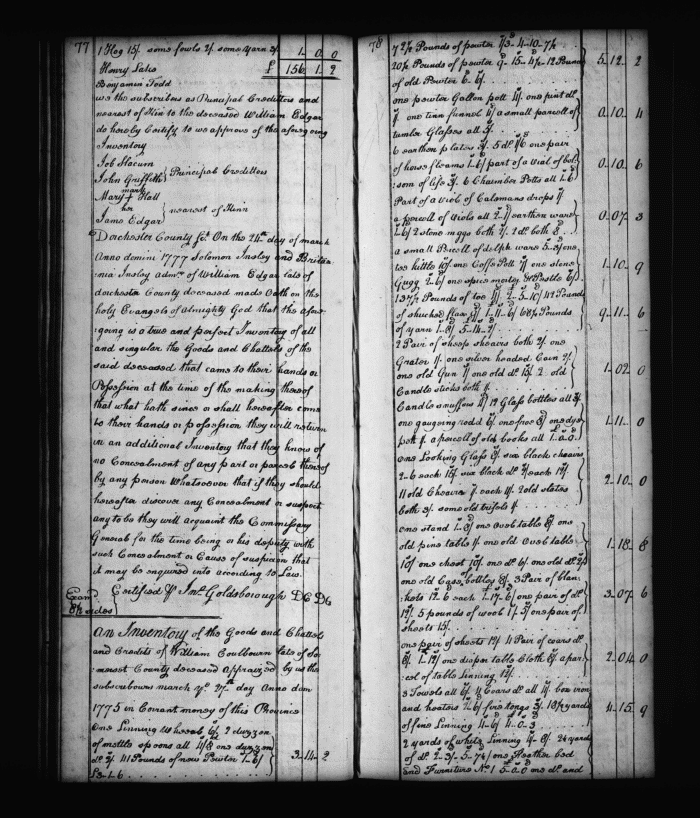 77
1 Hog 15/. some fowls 2/. some yarn 3/. 1 0 0
Henry Lake £ 156 1 2
Benjamin Todd
we the subscribers as Principal Creditors and
nearest of Kin to the deceased William Edgar
do hereby Certify to we approve of the aforegoing
Inventory
Job Slacum
John Griffith } Principal Creditors
mark
Mary + Hall
her
James Edgar } nearest of Kinn
Dorchester County Sct. On the 24th day of march
Anno domini 1777 Solomon Insley and Britta
nia Insley admrs of William Edgar late of
dorchester County deceased made Oath on the
holy Evangels of Almighty God that the afore
going is a true and perfect Inventory of all
and singular the Goods and Chattels of the
said deceased that came to their hands or
Possession at the time of the making thereof
that what hath since or shall hereafter come
to their hands or possession they will return
in an additional Inventory that they know of
no Concealment of any part or parcel thereof
by any person Whatsoever that if they should
hereafter discover any Concealment or suspect
any to be they will acquaint the Commissary
General for the time being or his deputy with
such Concealment or Cause of suspicion that
it may be enquired into according to Law.
Certified Jno. Goldsborough DC DC
Exam
sides
An Inventory of the Goods and Chattels
and Credits of William Coulbourn late of So
merset County deceased appraized by us the
subscribours march ye 27th day Anno dom
1775 in Corrant money of this Province
One Linning Wheeal 6/. 2 duzzen
of mettle spoons all 4/8 one duzzen
do. 2/. 41 Pounds of new Pewter 1-6/ 3-14-2
£3-1-6
78
7 2/2 Pounds of pewter
20 1/2 Pounds of pewter 12 Pound 5-12-2
of old Pewter
one pewter Gallon pott 4/. one pint do.
one tinn funnel a small parcell of 0-10-4
tumler Glasses all 3/.
6 earthen plates 3/. 5 do. one pair
of horse fleams part of a vial of bol 0-10-6
som of life 3/. 6 Chamber Potts all 1-6
Part of a viol of Batsmans drops
a parcell of viols all 2- earthen ware 0-07-3
1-6/. 2 stone muggs both 2/. 2 do. both
a small Parcell of delph ware 5-3/. one
tea kittle 10/. one Coffe Pott 7/. one stone 1-10-9
Gugg 2-6/. one spice morter & Pestle 6/.
13 1/2 Pounds of tea 2-5-10/. 42 Pounds
of shucked flax 1-11-6/. 68 1/2 Pounds 9-11-6
of yarn 1-8/. 5-14-2
2 Pair of sheep shears both 2/. one
Grater 1/. one silver headed Cain 2/.
one old Gun one old do. 15/. 2 old 1-02-0
Candle sticks both
Candle snuffers 19 Glass bottles all 3/.
one gauging rodd 6/. one one dye 1-11-0
pott a parcell of old books all 1-0-0
one Looking Glass 8/. six black cheairs
2-6 each 15/. six black do. each 12/. 2-10-0
11 old Cheairs each 11/. 2 old slates
both 3/. some old trifels
one stand 1-8/. one Ovel table 8/. one
old pine table 1/. one old Ovel table 1-18-8
10/. one chest 10/. one do. 6/. one old do. 2/.
one old Case bottles 8/. 3 Pair of blan
kets 12-6 each 1-17-6/. one pair of do. 3-07-6
12/. 5 pounds of wool 1/. one pair of
sheets 15/.
one pair of sheets 12/. 4 Pair of coars do.
8/. 1-12/. one diaper table Cloth 8/. a par 2-04-0
cel of table linning 12/.
3 Towels all 4 Coars do. all 4/. box iron
and heaters 7-6/. fire tongs 3/. 18 1/2 yards 4-15-9
of fine Linning 4-6/. 4-0-3
2 yards of white Linning 4-8/. 24 yards
of do. 2-3/. one Feather bed
and Furniture No. 1 5-0-0 one do. and